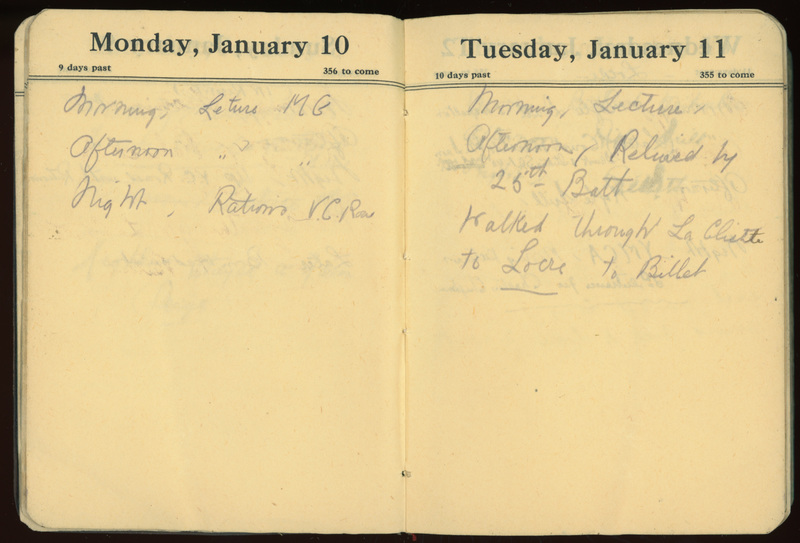 Monday, January 10
9 days past
356 to come
Morning, Leture MG
Afternoon " "
Night, Rations V.C. Road
Tuesday, January 11
10 days past
355 to come
Morning, Lecture,
Afternoon, Relieved by
25th Batt
Walked through La Clistte
to Locre to Billet